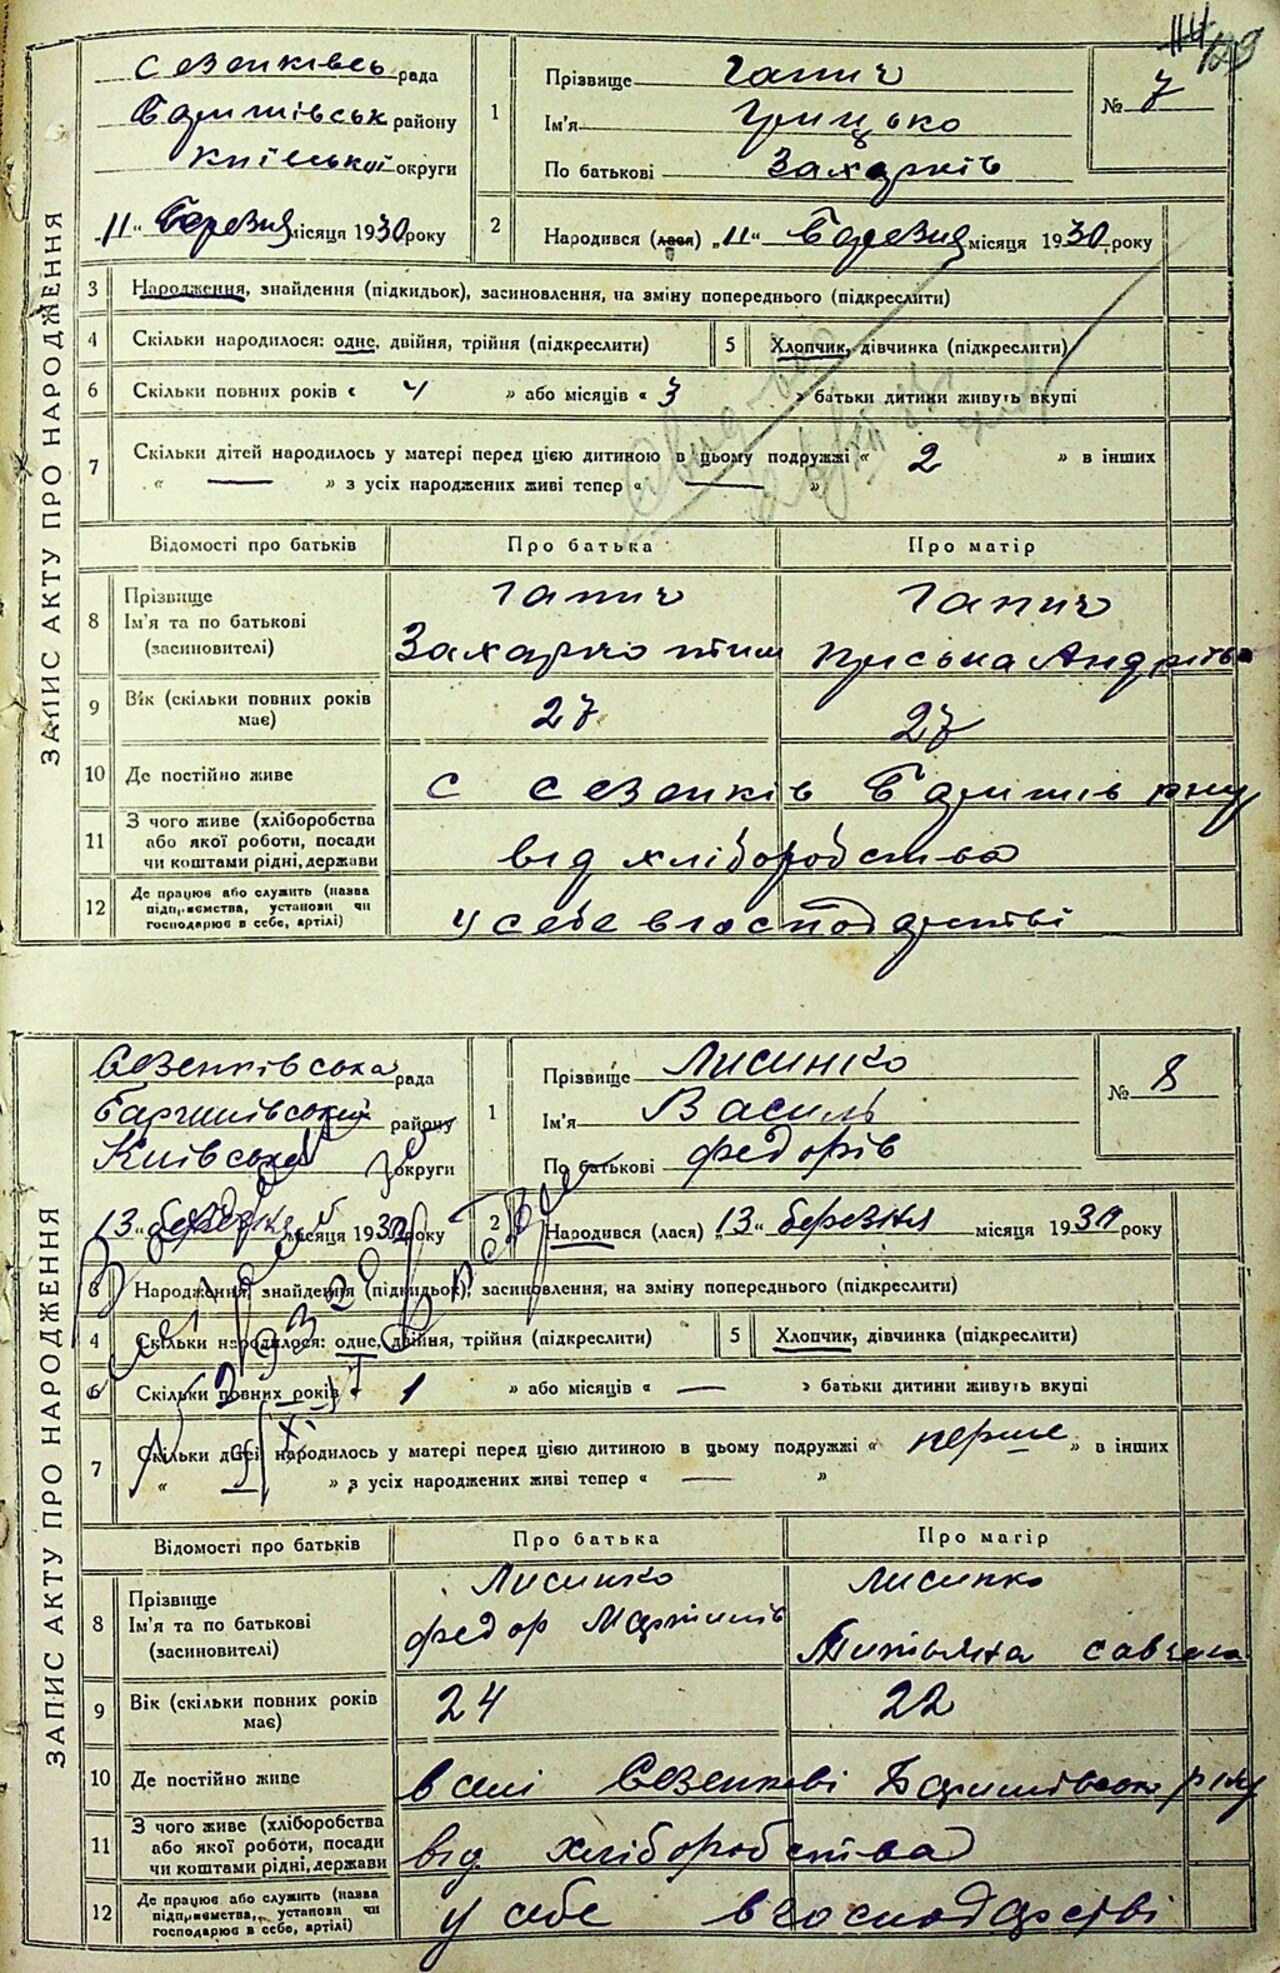 114
ЗАПИС АКТУ ПРО НАРОДЖЕННЯ
Сезенківсь рада
Баришівськ району
Київської округи
„11“ Березня місяця 1930 року
1
Прізвище Гапич
Ім'я Грицько
По батькові Захарків
№ 7
2
Народився (лася) „11“ Березня місяця 1930 року
3 Народження, знайдення (підкидьок), засиновлення, на зміну попереднього (підкреслити)
4 Скільки народилося: одне, двійня, трійня (підкреслити)
5 Хлопчик, дівчинка (підкреслити)
6 Скільки повних років « 4 » або місяців « 3 » батьки дитини живуть вкупі
7 Скільки дітей народилось у матері перед цією дитиною в цьому подружжі « 2 » в інших
« — » з усіх народжених живі тепер « — »
Відомості про батьків Про батька Про матір
8 Прізвище
Ім'я та по батькові
(засиновителі)
Гапич
Захарко
Гапич
Приська Андрієва
9 Вік (скільки повних років має) 27 27
10 Де постійно живе с Сезенків Баришів рну
11 З чого живе (хліборобства
або якої роботи, посади
чи коштами рідні, держави
від хліборобства
12 Де працює або служить (назва
підприємства, установи чи
господарює в себе, артілі)
у себе в господарстві
ЗАПИС АКТУ ПРО НАРОДЖЕННЯ
Сезенківська рада
Баришівський району
Київська округи
„13“ березня місяця 1930 року
1
Прізвище Лисинко
Ім'я Василь
По батькові Федорів
№ 8
2
Народився (лася) „13“ березня місяця 1930 року
3 Народження, знайдення (підкидьок), засиновлення, на зміну попереднього (підкреслити)
4 Скільки народилося: одне, двійня, трійня (підкреслити)
5 Хлопчик, дівчинка (підкреслити)
6 Скільки повних років « 1 » або місяців « — » батьки дитини живуть вкупі
7 Скільки дітей народилось у матері перед цією дитиною в цьому подружжі « перше » в інших
« — » з усіх народжених живі тепер « — »
Відомості про батьків Про батька Про матір
8 Прізвище
Ім'я та по батькові
(засиновителі)
Лисинко
Федор Мартинів
Лисинко
Савчена
9 Вік (скільки повних років має) 24 22
10 Де постійно живе в селі Сезенкові Баришівськ р ну
11 З чого живе (хліборобства
або якої роботи, посади
чи коштами рідні, держави
від хліборобства
12 Де працює або служить (назва
підприємства, установи чи
господарює в себе, артілі)
у себе в господарстві